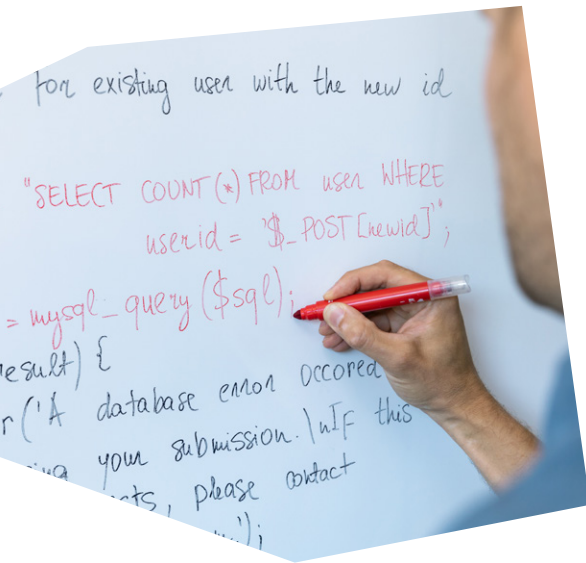 for existing user with the new id
"SELECT COUNT(*) FROM user WHERE
userid = '$_POST[newid]'";
= mysql_query ($sql);
result) {
r('A database error occored
your submission.\nIf this
please contact
');